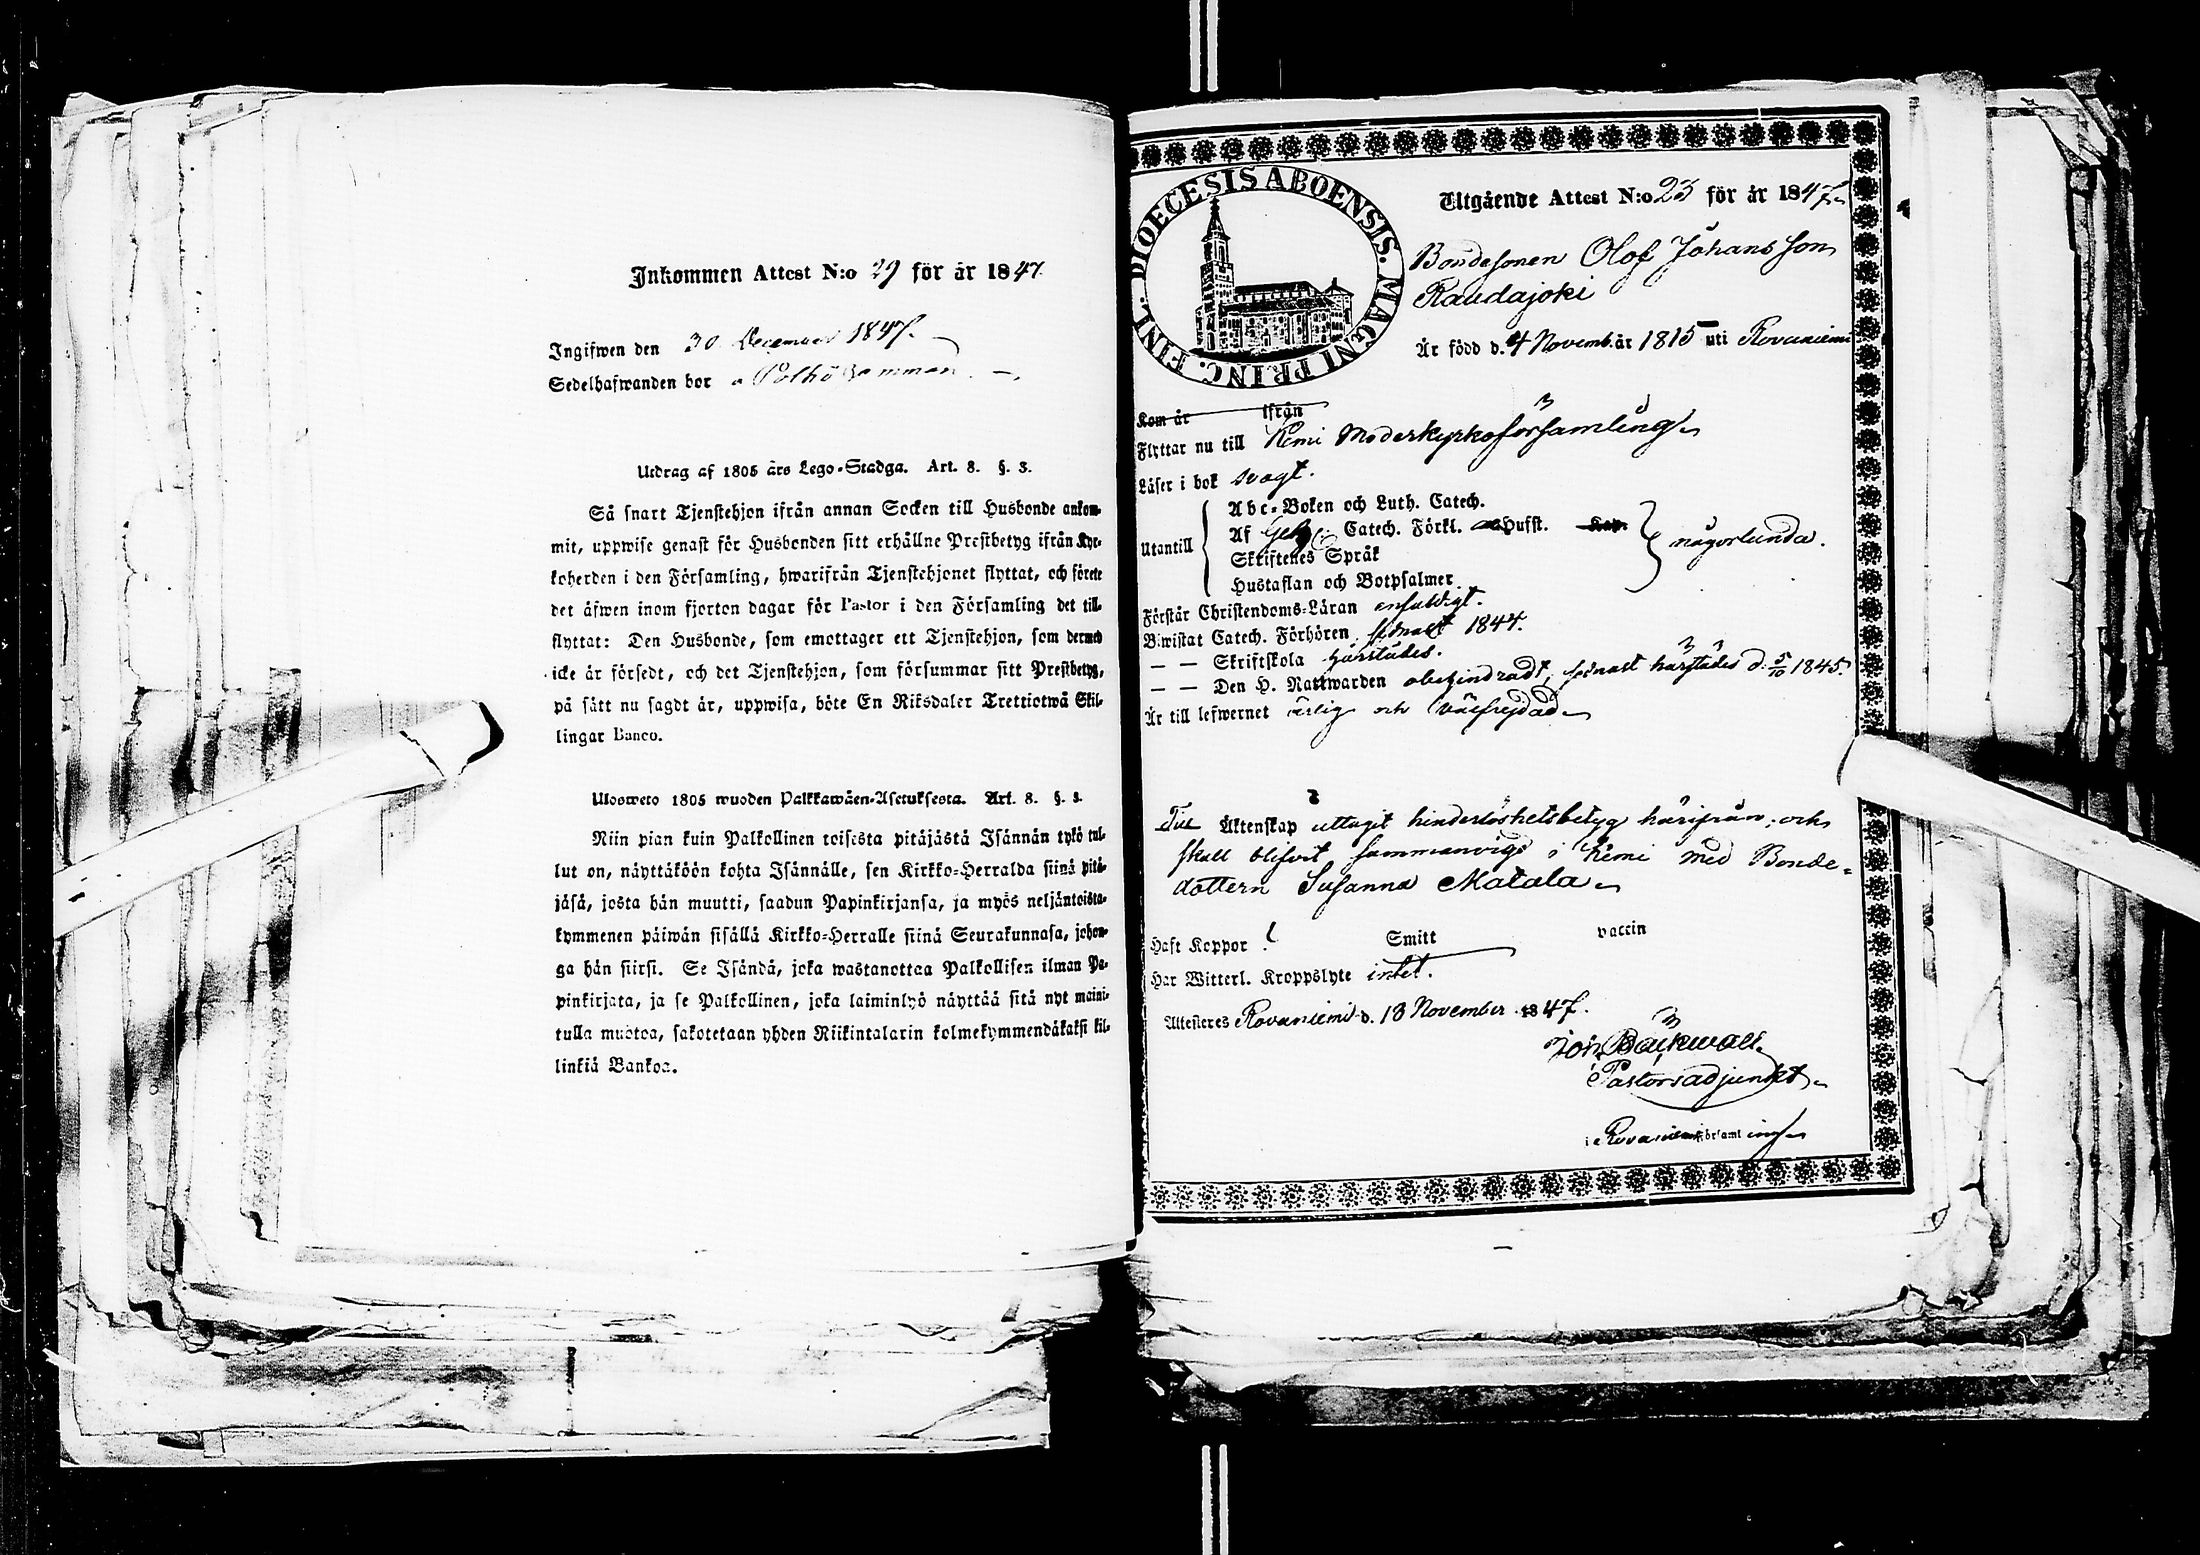 Inkommen Attest N:o 29 för år 1847
Ingifwen den 30 December 1847.
Sedelhafwanden bor
Utdrag af 1805 års Lego-Stadga. Art. 8. §. 3.
Så snart Tjenstehjon ifrån annan Socken till Husbonde ankom-
mit, uppwise genast för Husbonden sitt erhållne Prestbetyg ifrån Kyr-
koherden i den Församling, hwarifrån Tjenstehjonet flyttat, och förete
det äfwen inom fjorton dagar för Pastor i den Församling det till-
flyttat: Den Husbonde, som emottager ett Tjenstehjon, som dermed
icke är försedt, och det Tjenstehjon, som försummar sitt Prestbetyg,
på sätt nu sagdt är, uppwisa, böte En Riksdaler Trettiotwå Skil-
lingar Banco.
Ulosweto 1805 wuoden Palkkawäen-Asetuksesta. Art. 8. §. 3.
Niin pian kuin Palkollinen toisesta pitäjästä Isännän tykö tul-
lut on, näyttäköön kohta Isännälle, sen Kirkko-Herralda siinä pitä-
jäsä, josta hän muutti, saadun Papinkirjansa, ja myös neljäntoista-
kymmenen päiwän sisällä Kirkko-Herralle siinä Seurakunnasa, johon-
ga hän siirsi. Se Isändä, joka wastanottaa Palkollisen ilman Pa-
pinkirjata, ja se Palkollinen, joka laiminlyö näyttää sitä nyt maini-
tulla muotoa, sakotetaan yhden Riikintalarin kolmekymmendäkaksi kil-
linkiä Bankoa.
DIOECESIS ABOENSIS. MAGNI PRINC. FINL.
Utgående Attest N:o 23 för år 1847
Bondesonen Olof Johansson
Raudajoki
Är född d. 4 Novemb. år 1815 uti Rovaniemi
Kom år ifrån
Flyttar nu till Kemi Moderkyrkoförsamling
Läser i bok svagt.
Utantill
Abc-Boken och Luth. Catech.
Af Catech. Förkl. Hufst.
Skriftenes Språk
Hustaflan och Botpsalmer
någorlunda.
Förstår Christendoms-Läran enfaldigt.
Biwistat Catech. Förhören sednast 1844.
— — Skriftskola härstädes.
— — Den H. Nattwarden obehindradt, sednast härstädes d. 5/10 1845.
Är till lefwernet ärlig och välfrejdad
Till Äktenskap uttagit hinderlöshetsbetyg härifrån, och
skall blifvit sammanvigd i Kemi med Bonde-
dottern Susanna Matala
Haft Koppor Smitt vaccin
Har Witterl. Kroppslyte intet.
Attesteres Rovaniemi d. 18 November 1847.
Joh. Bäckwall
Pastorsadjunkt
i Rovaniemi församling